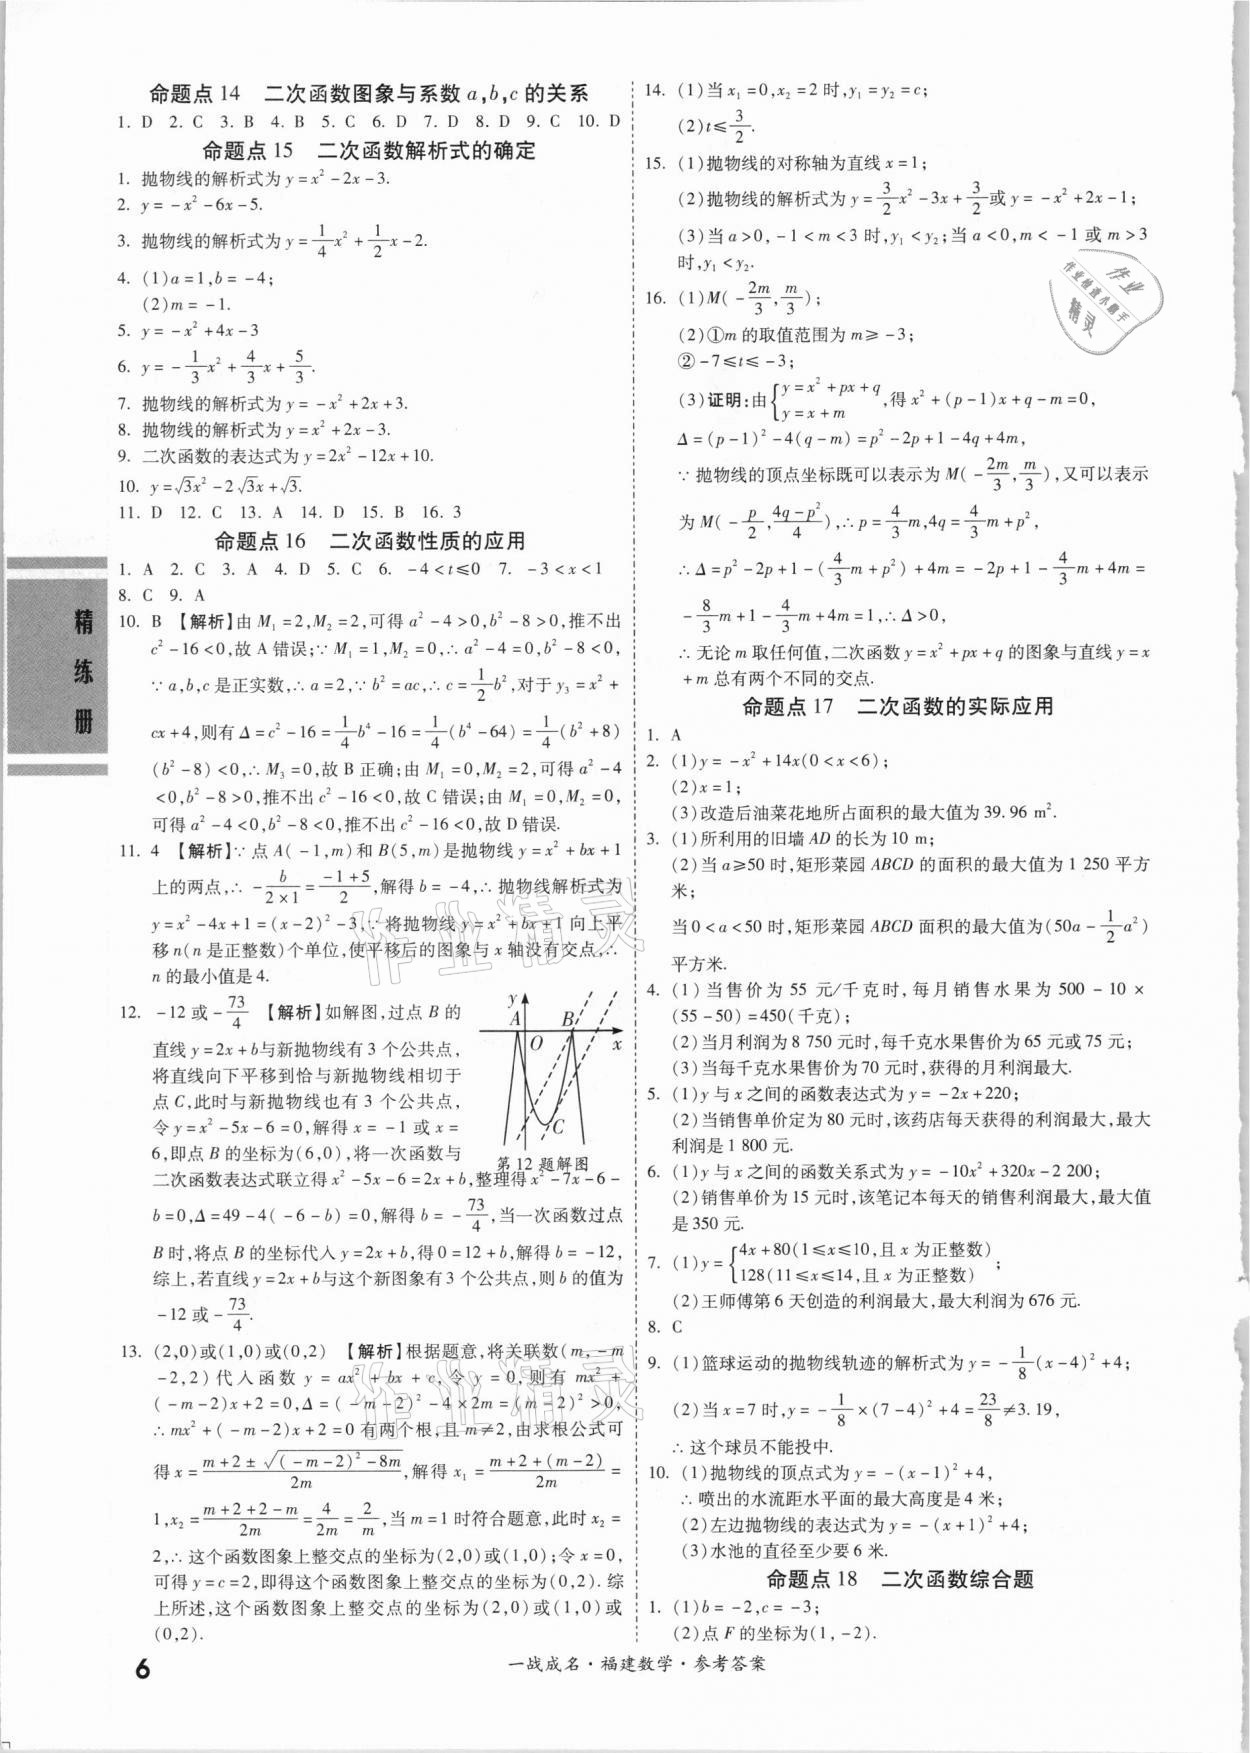 命题点14 二次函数图象与系数a,b,c的关系
1. D 2. C 3. B 4. B 5. C 6. D 7. D 8. D 9. C 10. D
命题点15 二次函数解析式的确定
1. 抛物线的解析式为y=x²-2x-3.
2. y=-x²-6x-5.
3. 抛物线的解析式为y=1/4x²+1/2x-2.
4. (1)a=1,b=-4;
(2)m=-1.
5. y=-x²+4x-3
6. y=-1/3x²+4/3x+5/3.
7. 抛物线的解析式为y=-x²+2x+3.
8. 抛物线的解析式为y=x²+2x-3.
9. 二次函数的表达式为y=2x²-12x+10.
10. y=√3x²-2√3x+√3.
11. D 12. C 13. A 14. D 15. B 16. 3
命题点16 二次函数性质的应用
1. A 2. C 3. A 4. D 5. C 6. -4<t≤0 7. -3<x<1
8. C 9. A
10. B 【解析】由M₁=2,M₂=2,可得a²-4>0,b²-8>0,推不出
c²-16<0,故A错误;∵M₁=1,M₂=0,∴a²-4=0,b²-8<0,
∵a,b,c是正实数,∴a=2,∵b²=ac,∴c=1/2b²,对于y₃=x²+
cx+4,则有Δ=c²-16=1/4b⁴-16=1/4(b⁴-64)=1/4(b²+8)
(b²-8)<0,∴M₃=0,故B正确;由M₁=0,M₂=2,可得a²-4
<0,b²-8>0,推不出c²-16<0,故C错误;由M₁=0,M₂=0,
可得a²-4<0,b²-8<0,推不出c²-16<0,故D错误.
11. 4 【解析】∵点A(-1,m)和B(5,m)是抛物线y=x²+bx+1
上的两点,∴-b/(2×1)=(-1+5)/2,解得b=-4,∴抛物线解析式为
y=x²-4x+1=(x-2)²-3,∵将抛物线y=x²+bx+1向上平
移n(n是正整数)个单位,使平移后的图象与x轴没有交点,∴
n的最小值是4.
12. -12或-73/4 【解析】如解图,过点B的
直线y=2x+b与新抛物线有3个公共点,
将直线向下平移到恰与新抛物线相切于
点C,此时与新抛物线也有3个公共点,
令y=x²-5x-6=0,解得x=-1或x=
6,即点B的坐标为(6,0),将一次函数与
二次函数表达式联立得x²-5x-6=2x+b,整理得x²-7x-6-
b=0,Δ=49-4(-6-b)=0,解得b=-73/4,当一次函数过点
B时,将点B的坐标代入y=2x+b,得0=12+b,解得b=-12,
综上,若直线y=2x+b与这个新图象有3个公共点,则b的值为
-12或-73/4.
y
A
B
O
x
C
第12题解图
13. (2,0)或(1,0)或(0,2) 【解析】根据题意,将关联数(m,-m
-2,2)代入函数y=ax²+bx+c,令y=0,则有mx²+
(-m-2)x+2=0,Δ=(-m-2)²-4×2m=(m-2)²>0,
∴mx²+(-m-2)x+2=0有两个根,且m≠2,由求根公式可
得x=(m+2±√((-m-2)²-8m))/2m,解得x₁=(m+2+(m-2))/2m=
1,x₂=(m+2+2-m)/2m=4/2m=2/m,当m=1时符合题意,此时x₂=
2,∴这个函数图象上整交点的坐标为(2,0)或(1,0);令x=0,
可得y=c=2,即得这个函数图象上整交点的坐标为(0,2).综
上所述,这个函数图象上整交点的坐标为(2,0)或(1,0)或
(0,2).
14. (1)当x₁=0,x₂=2时,y₁=y₂=c;
(2)t≤3/2.
15. (1)抛物线的对称轴为直线x=1;
(2)抛物线的解析式为y=3/2x²-3x+3/2或y=-x²+2x-1;
(3)当a>0,-1<m<3时,y₁<y₂;当a<0,m<-1或m>3
时,y₁<y₂.
16. (1)M(-2m/3,m/3);
(2)①m的取值范围为m≥-3;
②-7≤t≤-3;
(3)证明:由{y=x²+px+q
y=x+m,得x²+(p-1)x+q-m=0,
Δ=(p-1)²-4(q-m)=p²-2p+1-4q+4m,
∵抛物线的顶点坐标既可以表示为M(-2m/3,m/3),又可以表示
为M(-p/2,(4q-p²)/4),∴p=4/3m,4q=4/3m+p²,
∴Δ=p²-2p+1-(4/3m+p²)+4m=-2p+1-4/3m+4m=
-8/3m+1-4/3m+4m=1,∴Δ>0,
∴无论m取任何值,二次函数y=x²+px+q的图象与直线y=x
+m总有两个不同的交点.
命题点17 二次函数的实际应用
1. A
2. (1)y=-x²+14x(0<x<6);
(2)x=1;
(3)改造后油菜花地所占面积的最大值为39.96 m².
3. (1)所利用的旧墙AD的长为10 m;
(2)当a≥50时,矩形菜园ABCD的面积的最大值为1 250平方
米;
当0<a<50时,矩形菜园ABCD面积的最大值为(50a-1/2a²)
平方米.
4. (1)当售价为55元/千克时,每月销售水果为500-10×
(55-50)=450(千克);
(2)当月利润为8 750元时,每千克水果售价为65元或75元;
(3)当每千克水果售价为70元时,获得的月利润最大.
5. (1)y与x之间的函数表达式为y=-2x+220;
(2)当销售单价定为80元时,该药店每天获得的利润最大,最大
利润是1 800元.
6. (1)y与x之间的函数关系式为y=-10x²+320x-2 200;
(2)销售单价为15元时,该笔记本每天的销售利润最大,最大值
是350元.
7. (1)y={4x+80(1≤x≤10,且x为正整数)
128(11≤x≤14,且x为正整数);
(2)王师傅第6天创造的利润最大,最大利润为676元.
8. C
9. (1)篮球运动的抛物线轨迹的解析式为y=-1/8(x-4)²+4;
(2)当x=7时,y=-1/8×(7-4)²+4=23/8≠3.19,
∴这个球员不能投中.
10. (1)抛物线的顶点式为y=-(x-1)²+4,
∴喷出的水流距水平面的最大高度是4米;
(2)左边抛物线的表达式为y=-(x+1)²+4;
(3)水池的直径至少要6米.
命题点18 二次函数综合题
1. (1)b=-2,c=-3;
(2)点F的坐标为(1,-2).
精练册
6
一战成名·福建数学·参考答案
作业精灵
作业精灵
作业
作业检查小助手
精灵